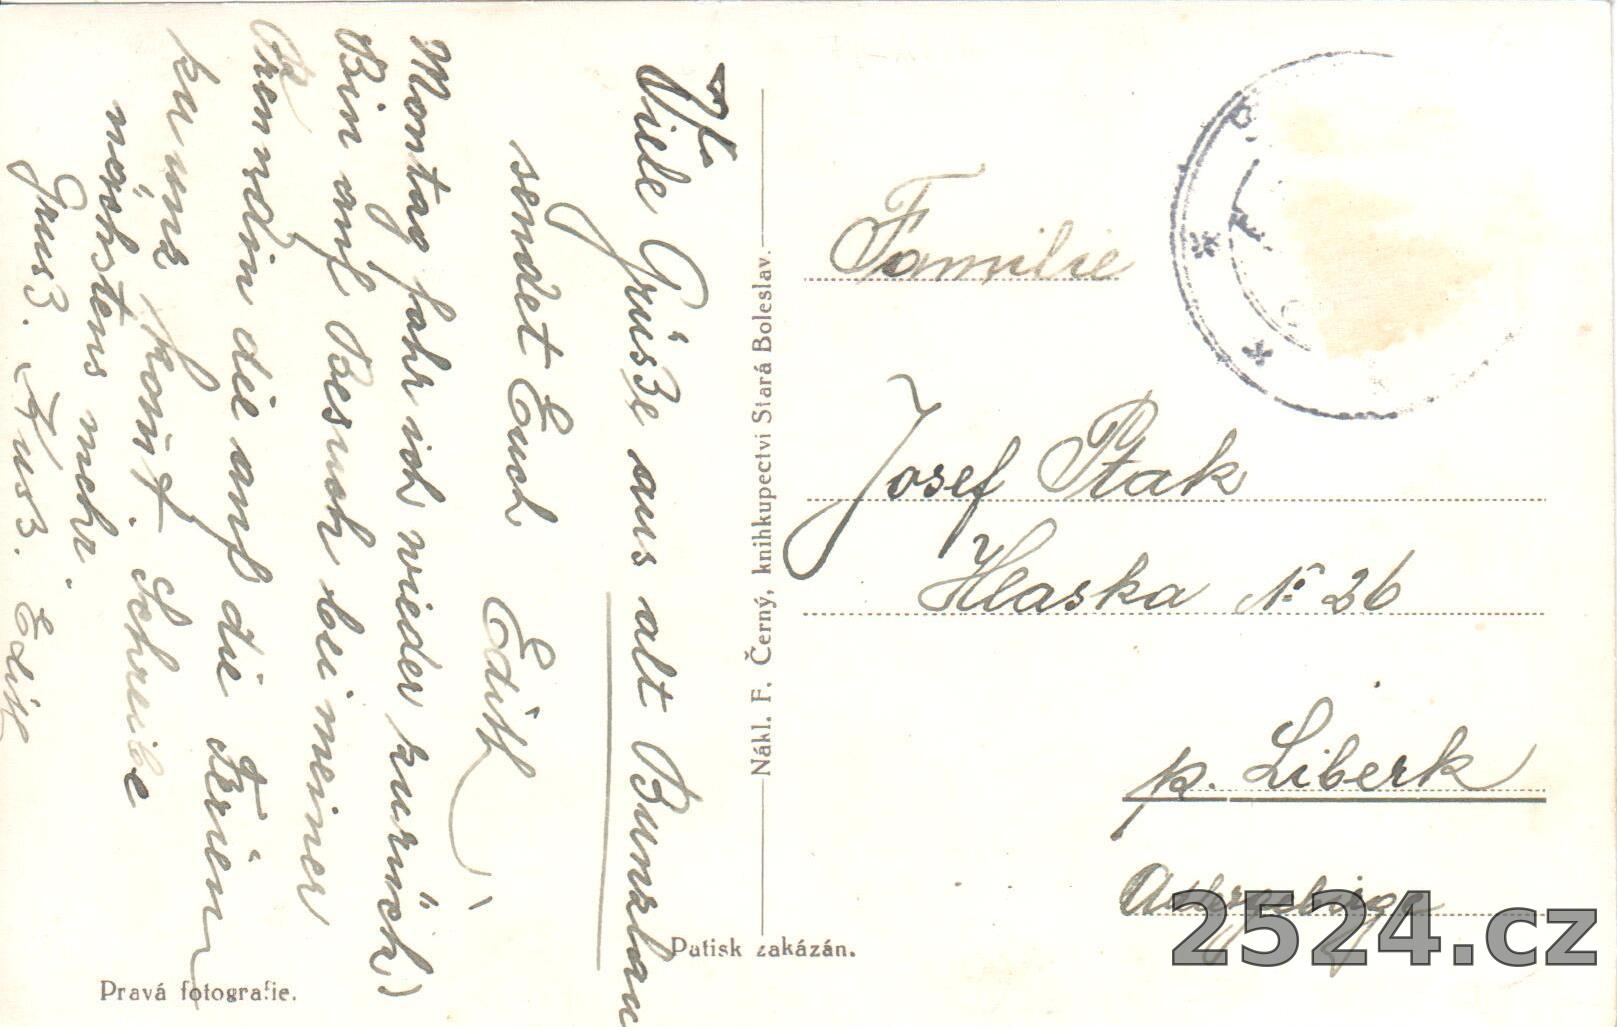 Viele Grüsse aus alt Bunzlau
sendet Euch Edith
Montag fahr ich wieder zurück)
Bin auf Besuch bei meiner
Freundin die auf die Ferien
zu uns kommt. Schreibe
nächstens mehr.
Gruss. Kuss. Edith
Nákl. F. Černý, knihkupectví Stará Boleslav.
Familie
Josef Ptak
Hlaska № 26
p. Liberk
Adlergebirge
2524.cz
Patisk zakázán.
Pravá fotografie.